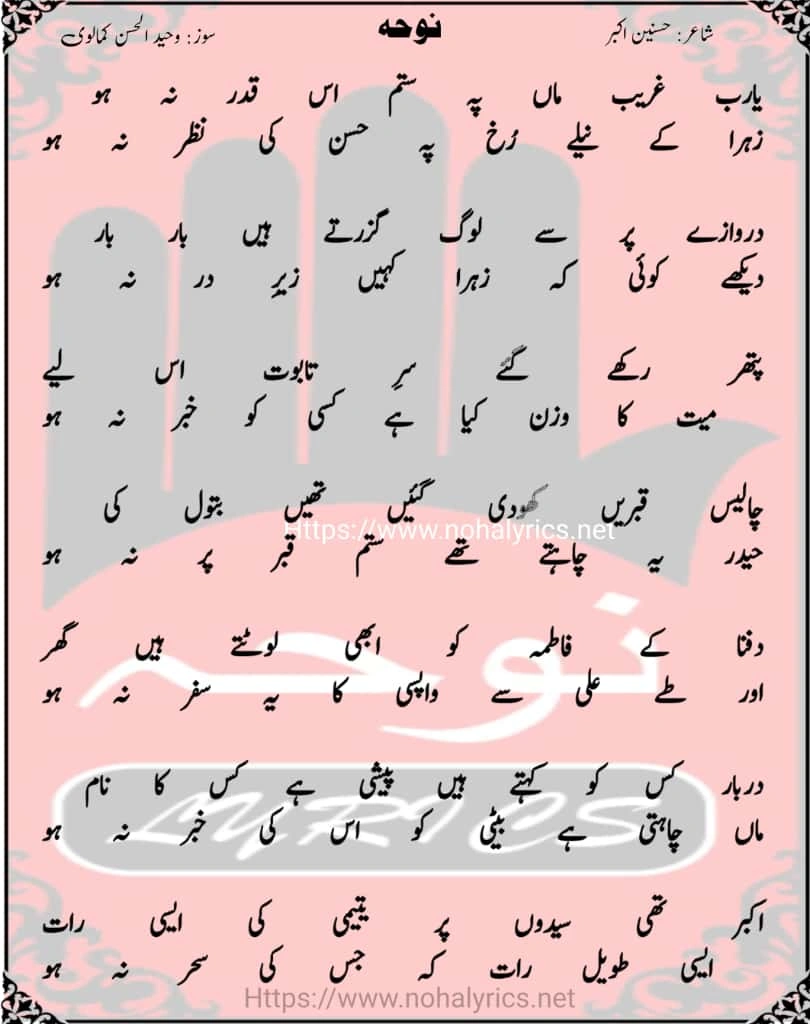 شاعر: حسنین اکبر
نوحہ
سوز: وحید الحسن کمالوی
یارب غریب ماں پہ ستم اس قدر نہ ہو
زہرا کے نیلے رُخ پہ حسن کی نظر نہ ہو
دروازے پر سے لوگ گزرتے ہیں بار بار
دیکھے کوئی کہ زہرا کہیں زیرِ در نہ ہو
پتھر رکھے گئے سرِ تابوت اس لیے
میت کا وزن کیا ہے کسی کو خبر نہ ہو
چالیس قبریں کھودی گئیں تھیں بتول کی
Https://www.nohalyrics.net
حیدر یہ چاہتے تھے ستم قبر پر نہ ہو
نوحہ
دفنا کے فاطمہ کو ابھی لوٹتے ہیں گھر
اور طے علی سے واپسی کا یہ سفر نہ ہو
دربار کس کو کہتے ہیں پیشی ہے کس کا نام
LYRICS
ماں چاہتی ہے بیٹی کو اس کی خبر نہ ہو
اکبر تھی سیدوں پر یتیمی کی ایسی رات
ایسی طویل رات کہ جس کی سحر نہ ہو
Https://www.nohalyrics.net